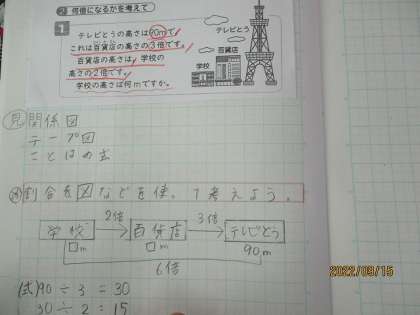 2 何倍になるかを考えて
1
テレビとうの高さは90mで、
これは百貨店の高さの3倍です。
百貨店の高さは、学校の
高さの2倍です。
学校の高さは何mですか。
テレビとう
百貨店
学校
見 関係図
テープ図
ことばの式
割合を図などを使って考えよう。
2倍 3倍
学校 百貨店 テレビとう
□m □m 90m
6倍
(式) 90 ÷ 3 = 30
30 ÷ 2 = 15
2022/09/15